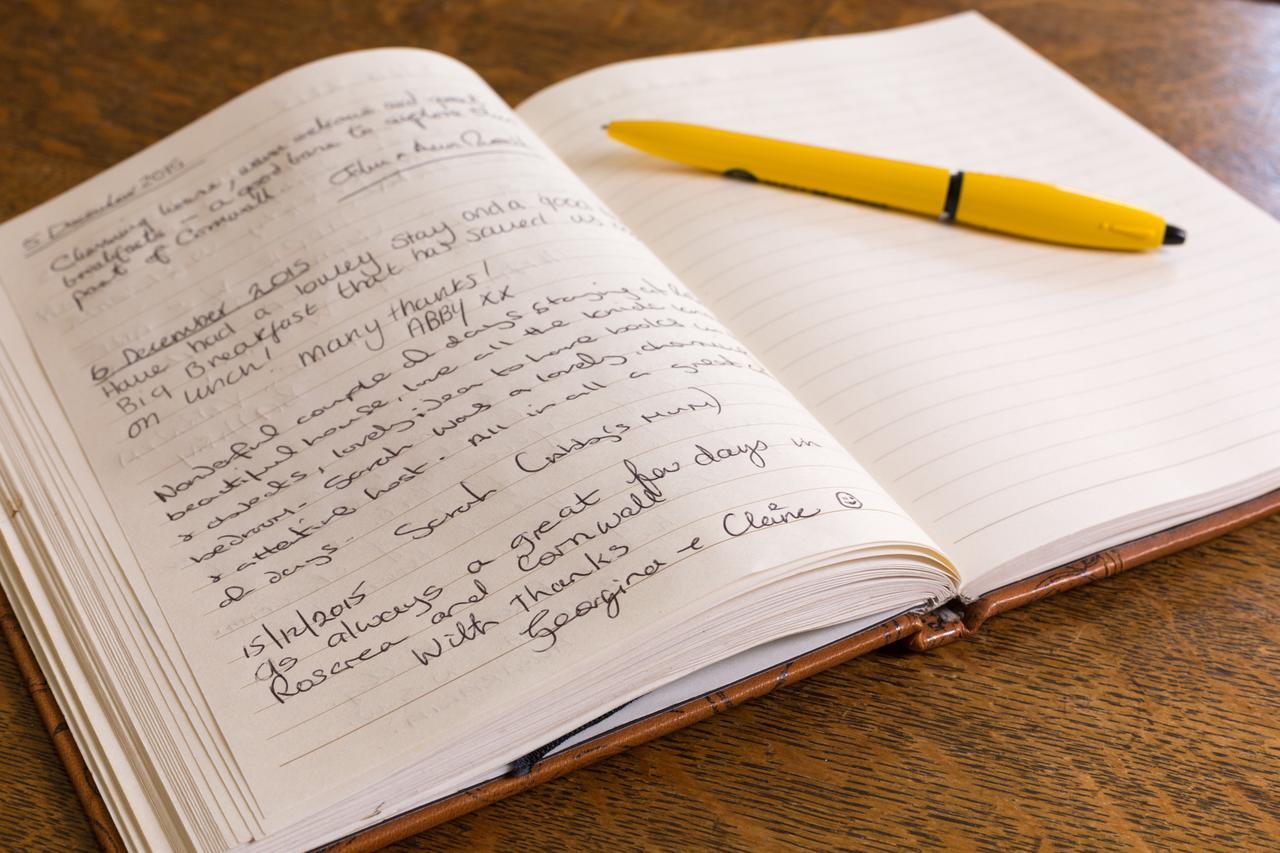 5 December 2015
Charming house, warm welcome and great
breakfasts - a good base to explore this
part of Cornwall
John & Ann
6 December 2015
Have had a lovley stay and a good
Big Breakfast that has saved us
on lunch! many thanks!
ABBY xx
Wonderful couple of days staying at
beautiful house, love all the knick
& objects, lovely idea to have books in
bedroom. Sarah was a lovely,
& attentive host. All in all a great
2 days. Sarah (Abby's MUM)
15/12/2015
as always a great few days in
Roscrea and Cornwall
With thanks
Georgina & Claire